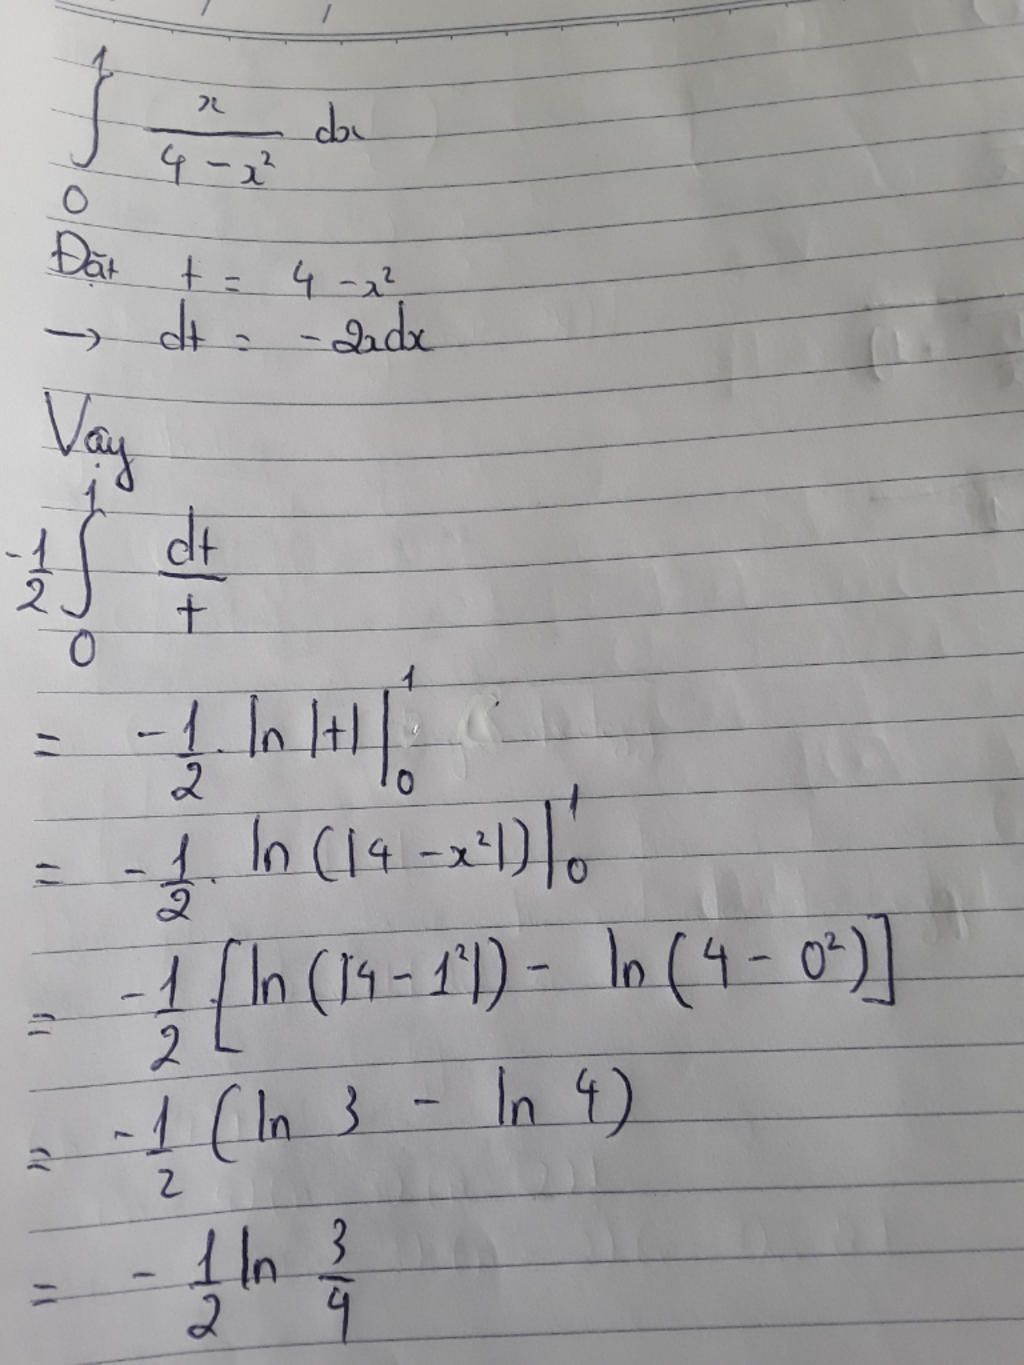 ∫₀¹ x/(4 - x²) dx
Đặt t = 4 - x²
→ dt = -2xdx
Vậy
-1/2 ∫₀¹ dt/t
= -1/2 . ln |t| |₀¹
= -1/2 . ln (|4 - x²|) |₀¹
= -1/2 [ln (|4 - 1²|) - ln (4 - 0²)]
= -1/2 (ln 3 - ln 4)
= -1/2 ln 3/4